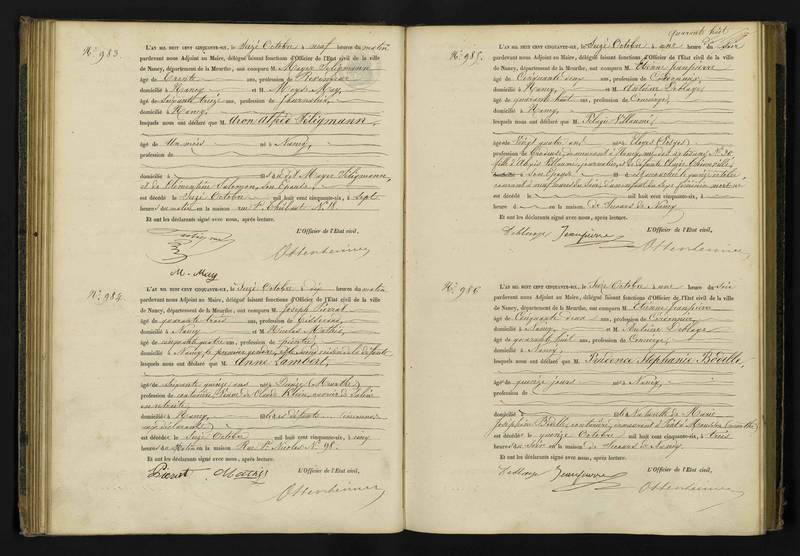 N° 983.
L'AN MIL HUIT CENT CINQUANTE-SIX, le Seize Octobre à neuf heures du matin
pardevant nous Adjoint au Maire, délégué faisant fonctions d'Officier de l'Etat civil de la ville
de Nancy, département de la Meurthe, ont comparu M. Mayer Seligmann
âgé de Trente ans, profession de
domicilié à Nancy et M. Moyse May,
âgé de Soixante treize ans, profession de Journalier,
domicilié à Nancy,
lesquels nous ont déclaré que M. Aron Alfred Seligmann,
âgé de Un mois né à Nancy,
profession de
domicilié à fils de Mayer Seligmann,
et de Clémentine Salomon, son épouse,
est décédé le Seize Octobre mil huit cent cinquante-six, à Sept
heures du matin en la maison rue St Thiébaut N° 18.
Et ont les déclarants signé avec nous, après lecture.
L'Officier de l'Etat civil,
Seligman
Ottenheimer
M. May
N° 984.
L'AN MIL HUIT CENT CINQUANTE-SIX, le Seize Octobre à dix heures du matin
pardevant nous Adjoint au Maire, délégué faisant fonctions d'Officier de l'Etat civil de la ville
de Nancy, département de la Meurthe, ont comparu M. Joseph Pierrot
âgé de quarante trois ans, profession de Tisserand,
domicilié à Nancy et M. Nicolas Mathis,
âgé de cinquante quatre ans, profession de peintre,
domicilié à Nancy, le premier gendre, et le second voisin de la défunte
lesquels nous ont déclaré que M. Anne Lambert,
âgée de Soixante quinze ans née à (Meurthe)
profession de couturière, Veuve de Claude Klein, ouvrier de
en retraite
domiciliée à Nancy,
est décédée le Seize Octobre mil huit cent cinquante-six, à cinq
heures du Matin en la maison Rue St Nicolas N° 98.
Et ont les déclarants signé avec nous, après lecture.
L'Officier de l'Etat civil,
Pierrot Mathis
Ottenheimer
quarante huit
N° 985.
L'AN MIL HUIT CENT CINQUANTE-SIX, le Seize Octobre à une heure du Soir
pardevant nous Adjoint au Maire, délégué faisant fonctions d'Officier de l'Etat civil de la ville
de Nancy, département de la Meurthe, ont comparu M. Etienne Jeanpierre
âgé de Cinquante deux ans, profession de Cordonnier,
domicilié à Nancy, et M. Antoine Deblaye
âgé de quarante huit ans, profession de Concierge,
domicilié à Nancy,
lesquels nous ont déclaré que M.
âgée de Vingt quatre ans née à Eloyes (Vosges)
profession de Brodeuse, demeurant à Nancy,
son épouse
est décédé le mil huit cent cinquante-six, à
heures du en la maison de Secours de Nancy
Et ont les déclarants signé avec nous, après lecture.
L'Officier de l'Etat civil,
Deblaye Jeanpierre
Ottenheimer
N° 986.
L'AN MIL HUIT CENT CINQUANTE-SIX, le Seize Octobre à une heure du Soir
pardevant nous Adjoint au Maire, délégué faisant fonctions d'Officier de l'Etat civil de la ville
de Nancy, département de la Meurthe, ont comparu M. Etienne Jeanpierre
âgé de Cinquante deux ans, profession de Cordonnier,
domicilié à Nancy, et M. Antoine Deblaye
âgé de quarante huit ans, profession de Concierge,
domicilié à Nancy,
lesquels nous ont déclaré que M. Prudence Stéphanie Boville,
âgé de quinze jours née à Nancy,
profession de
domicilié à fille Naturelle de Marie
Joséphine Boville, couturière, demeurant à Pont à Mousson (Meurthe)
est décédée le quinze Octobre mil huit cent cinquante-six, à trois
heures du Soir en la maison de Secours de Nancy
Et ont les déclarants signé avec nous, après lecture.
L'Officier de l'Etat civil,
Deblaye Jeanpierre
Ottenheimer